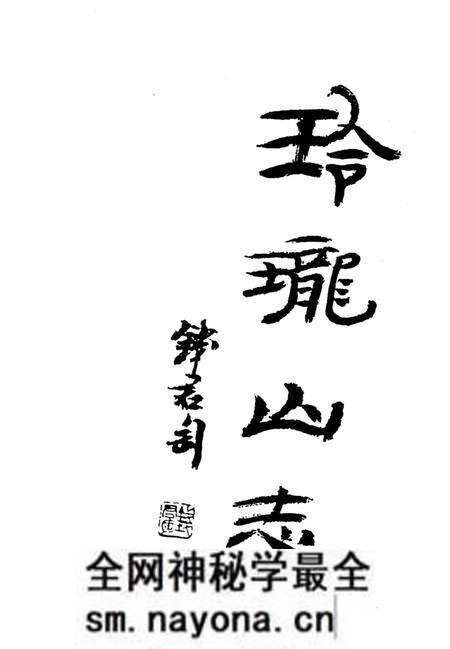 玲瓏山志
錢君匋
全网神秘学最全
sm.nayona.cn